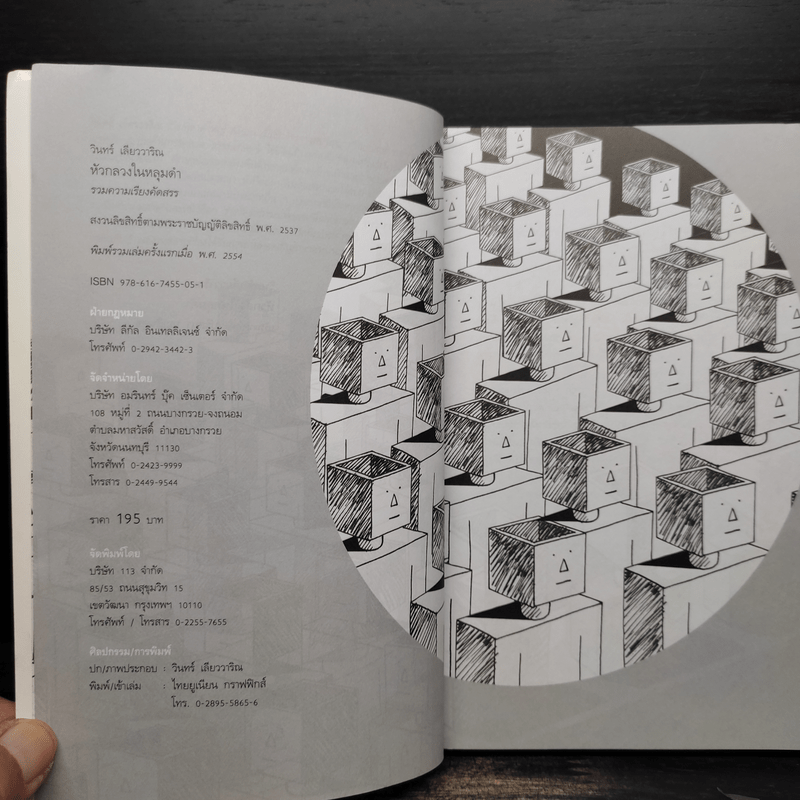 วินทร์ เลียววาริณ
หัวกลวงในหลุมดำ
รวมความเรียงคัดสรร
สงวนลิขสิทธิ์ตามพระราชบัญญัติลิขสิทธิ์ พ.ศ. 2537
พิมพ์รวมเล่มครั้งแรกเมื่อ พ.ศ. 2554
ISBN 978-616-7455-05-1
ฝ่ายกฎหมาย
บริษัท ลีกัล อินเทลลิเจนซ์ จำกัด
โทรศัพท์ 0-2942-3442-3
จัดจำหน่ายโดย
บริษัท อมรินทร์ บุ๊ค เซ็นเตอร์ จำกัด
108 หมู่ที่ 2 ถนนบางกรวย-จงถนอม
ตำบลมหาสวัสดิ์ อำเภอบางกรวย
จังหวัดนนทบุรี 11130
โทรศัพท์ 0-2423-9999
โทรสาร 0-2449-9544
ราคา 195 บาท
จัดพิมพ์โดย
บริษัท 113 จำกัด
85/53 ถนนสุขุมวิท 15
เขตวัฒนา กรุงเทพฯ 10110
โทรศัพท์ / โทรสาร 0-2255-7655
ศิลปกรรม/การพิมพ์
ปก/ภาพประกอบ : วินทร์ เลียววาริณ
พิมพ์/เข้าเล่ม : ไทยยูเนียน กราฟฟิกส์
โทร. 0-2895-5865-6